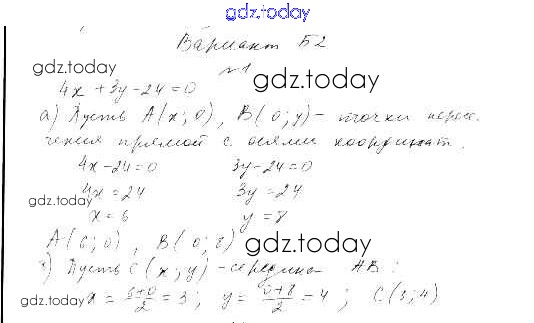 gdz.today
Вариант Б2
gdz.today
№1
gdz.today
4x + 3y - 24 = 0
а) Пусть A(x; 0), B(0; y) - точки пересе-
чения прямой с осями координат.
4x - 24 = 0 3y - 24 = 0
4x = 24 3y = 24
gdz.today
x = 6 y = 8
A(6; 0), B(0; 8)
gdz.today
Пусть C(x; y) - середина AB:
x = \frac{6+0}{2} = 3; y = \frac{0+8}{2} = 4; C(3; 4)
gdz.today
gdz.today